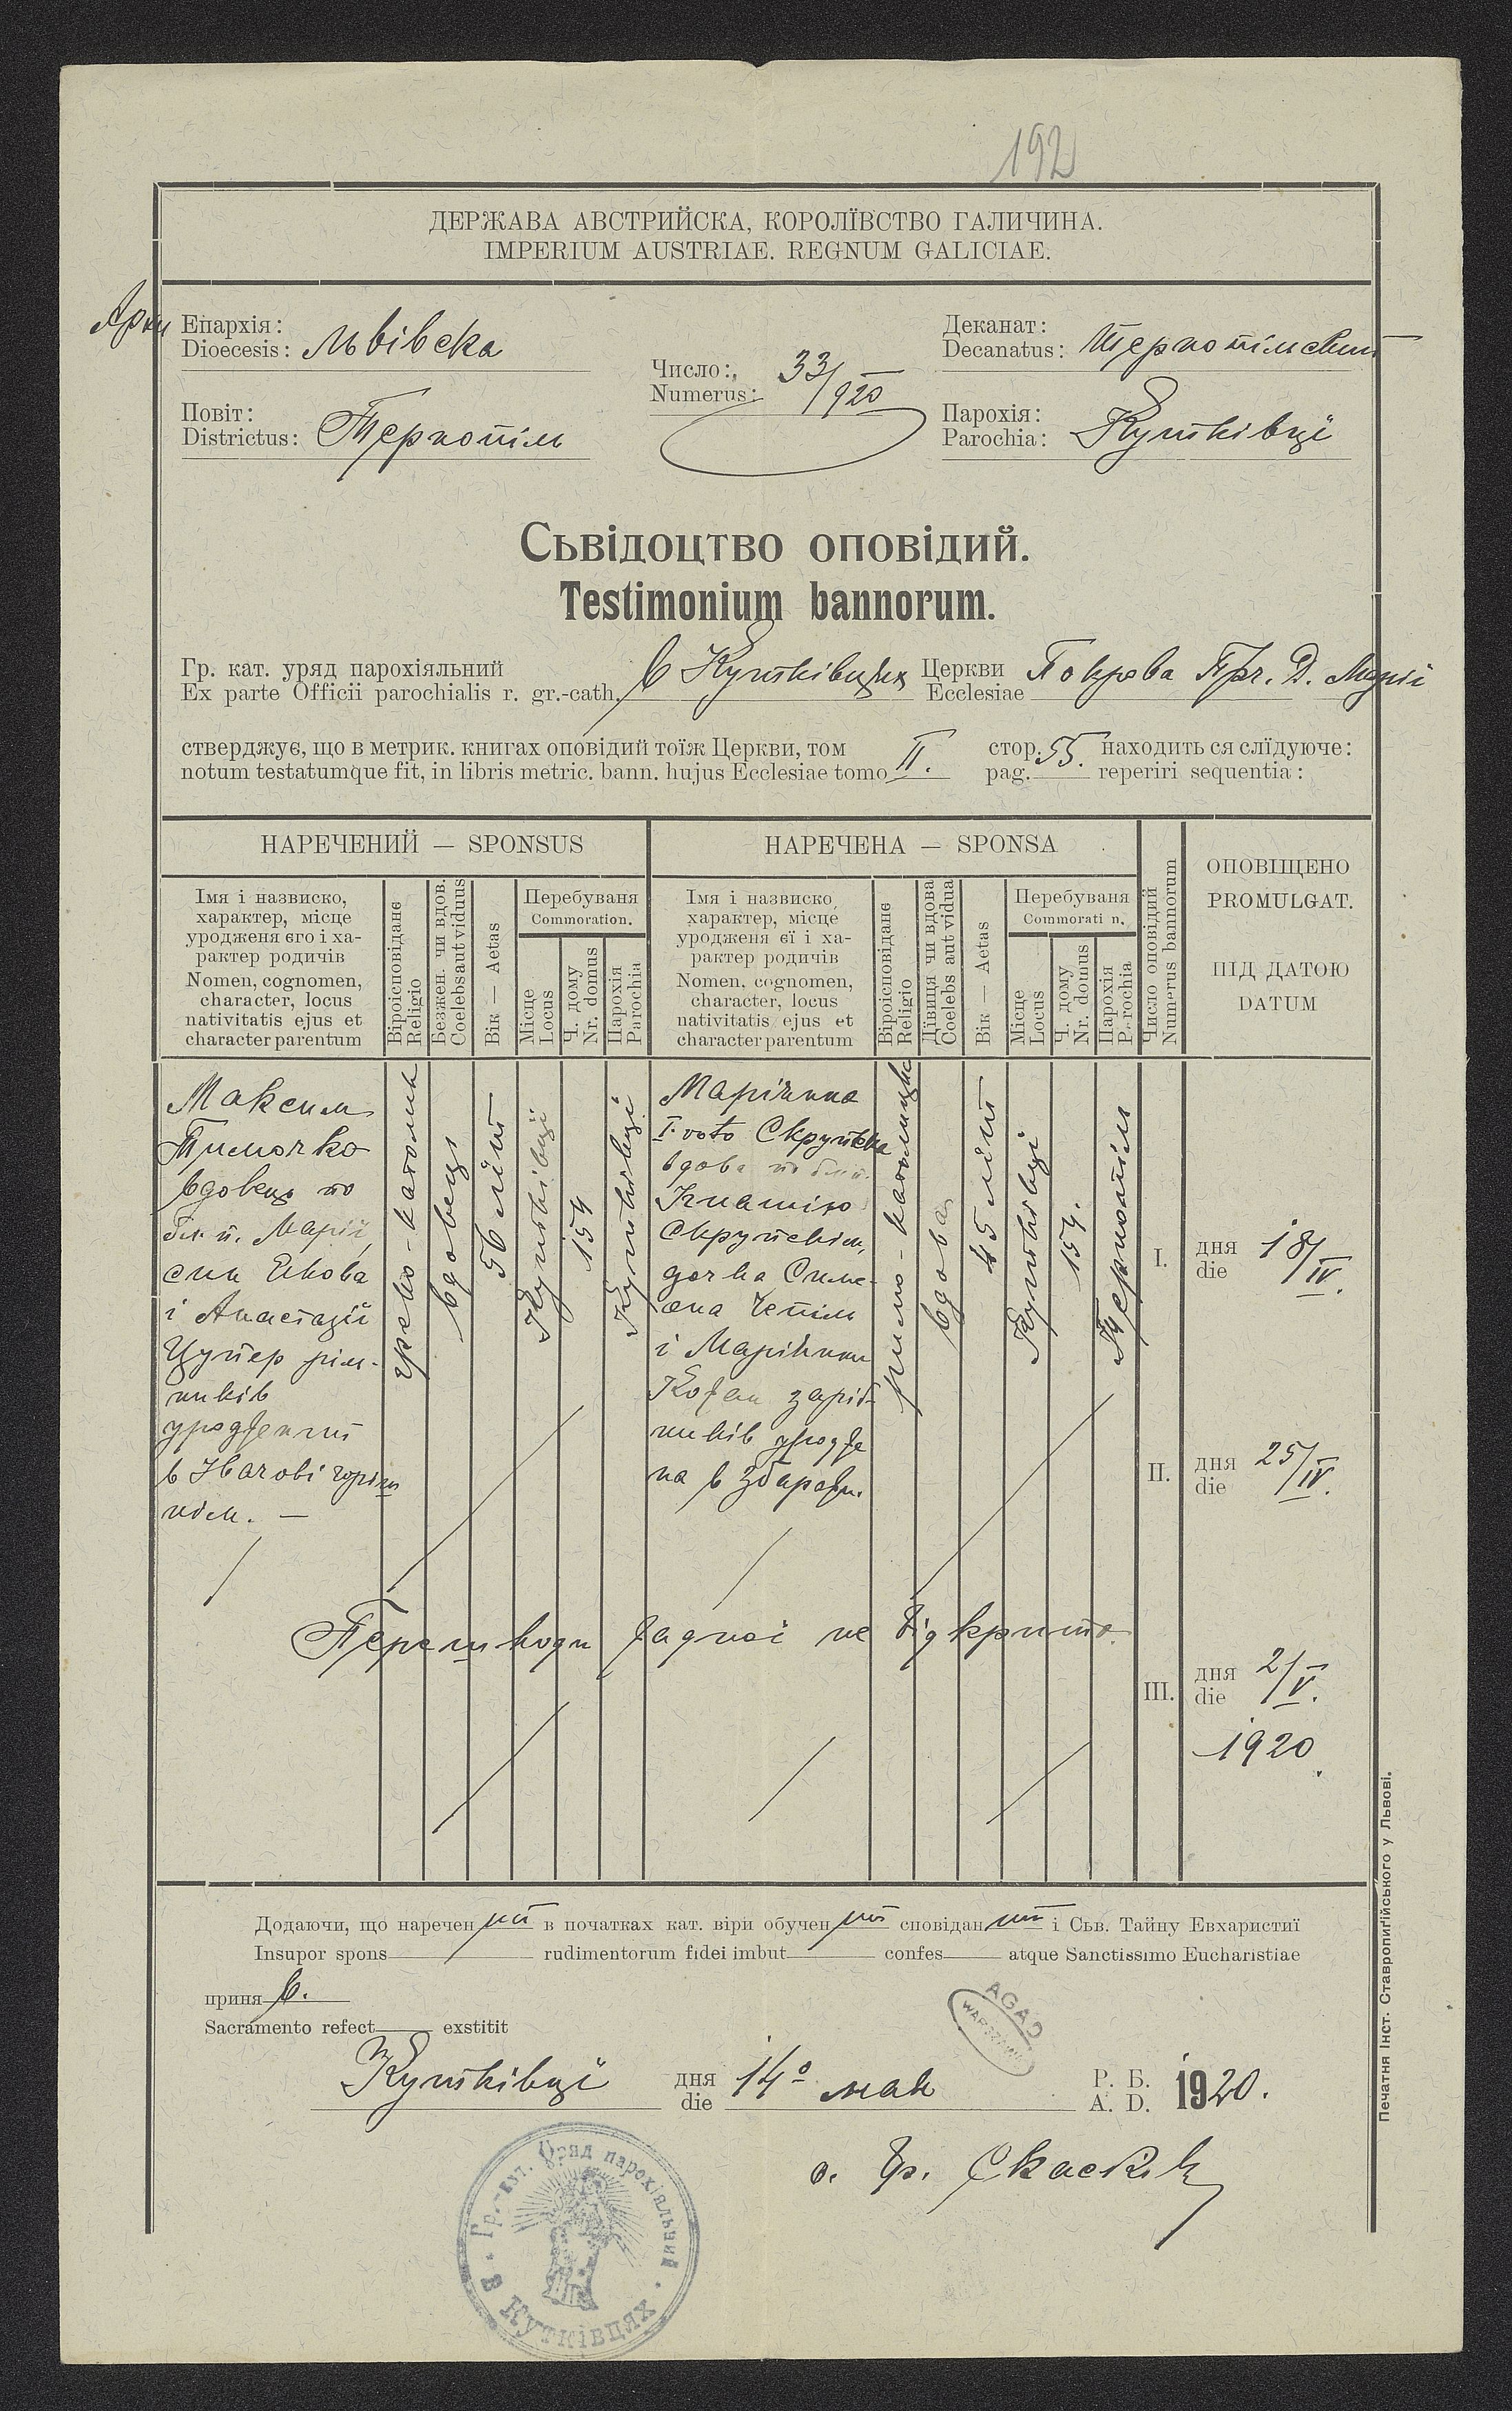 192
ДЕРЖАВА АВСТРИЙСКА, КОРОЛЇВСТВО ГАЛИЧИНА.
IMPERIUM AUSTRIAE. REGNUM GALICIAE.
Архи Епархія: Львівска
Dioecesis:
Деканат: Тернопільский
Decanatus:
Число: 33/920
Numerus:
Повіт: Тернопіль
Districtus:
Парохія: Кутківцї
Parochia:
Сьвідоцтво оповідий.
Testimonium bannorum.
Гр. кат. уряд парохіяльний в Кутківцях Церкви Покрова Прч. Д. Марії
Ex parte Officii parochialis r. gr.-cath. Ecclesiae
стверджує, що в метрик. книгах оповідий тоїж Церкви, том II. стор. 55. находить ся слїдуюче:
notum testatumque fit, in libris metric. bann. hujus Ecclesiae tomo pag. reperiri sequentia:
НАРЕЧЕНИЙ — SPONSUS
НАРЕЧЕНА — SPONSA
Число оповідий
Numerus bannorum
ОПОВІЩЕНО
PROMULGAT.
ПІД ДАТОЮ
DATUM
Імя і назвиско,
характер, місце
уродженя єго і ха-
рактер родичів
Nomen, cognomen,
character, locus
nativitatis ejus et
character parentum
Віроісповіданє
Religio
Безжен. чи вдов.
Coelebs aut viduus
Вік — Aetas
Перебуваня
Commoration.
Місце
Locus
Ч. дому
Nr. domus
Парохія
Parochia
Імя і назвиско,
характер, місце
уродженя єї і ха-
рактер родичів
Nomen, cognomen,
character, locus
nativitatis ejus et
character parentum
Віроісповіданє
Religio
Дївиця чи вдова
Coelebs aut vidua
Вік — Aetas
Перебуваня
Commorati n.
Місце
Locus
Ч. дому
Nr. domus
Парохія
P. rochia
Максим
Тимочко
вдовець по
бл. п. Марії,
син Якова
і Анастазії
Цупер рім-
ників
уроджений
в Івачові горіш
нім. —
греко-католик
вдовець
56 літ
Кутківцї
154
Кутківцї
Маріянна
I. voto Скрупска
вдова по бл. п.
Ігнатію
Скрупскім,
дочка Симе-
она Чепіль
і Маріянни
Кожан заріб-
ників уродже
на в Збаражи.
римо-католицке
вдова
45 літ
Кутківцї
154.
Тернопіль
I. дня 18/IV.
die
II. дня 25/IV.
die
Перешкоди жадної не відкрито.
III. дня 2/V.
die
1920.
Додаючи, що наречен ні в початках кат. віри обучен ні сповідан ні і Сьв. Тайну Евхаристиї
Insupor spons rudimentorum fidei imbut confes atque Sanctissimo Eucharistiae
приня в.
Sacramento refect exstitit
AGAD
WARSZAWA
Кутківцї дня 14º мая Р. Б. 1920.
die A. D.
Гр.-кат. Уряд парохіяльний
в Кутківцях
Печатня Інст. Ставропигійського у Львові.